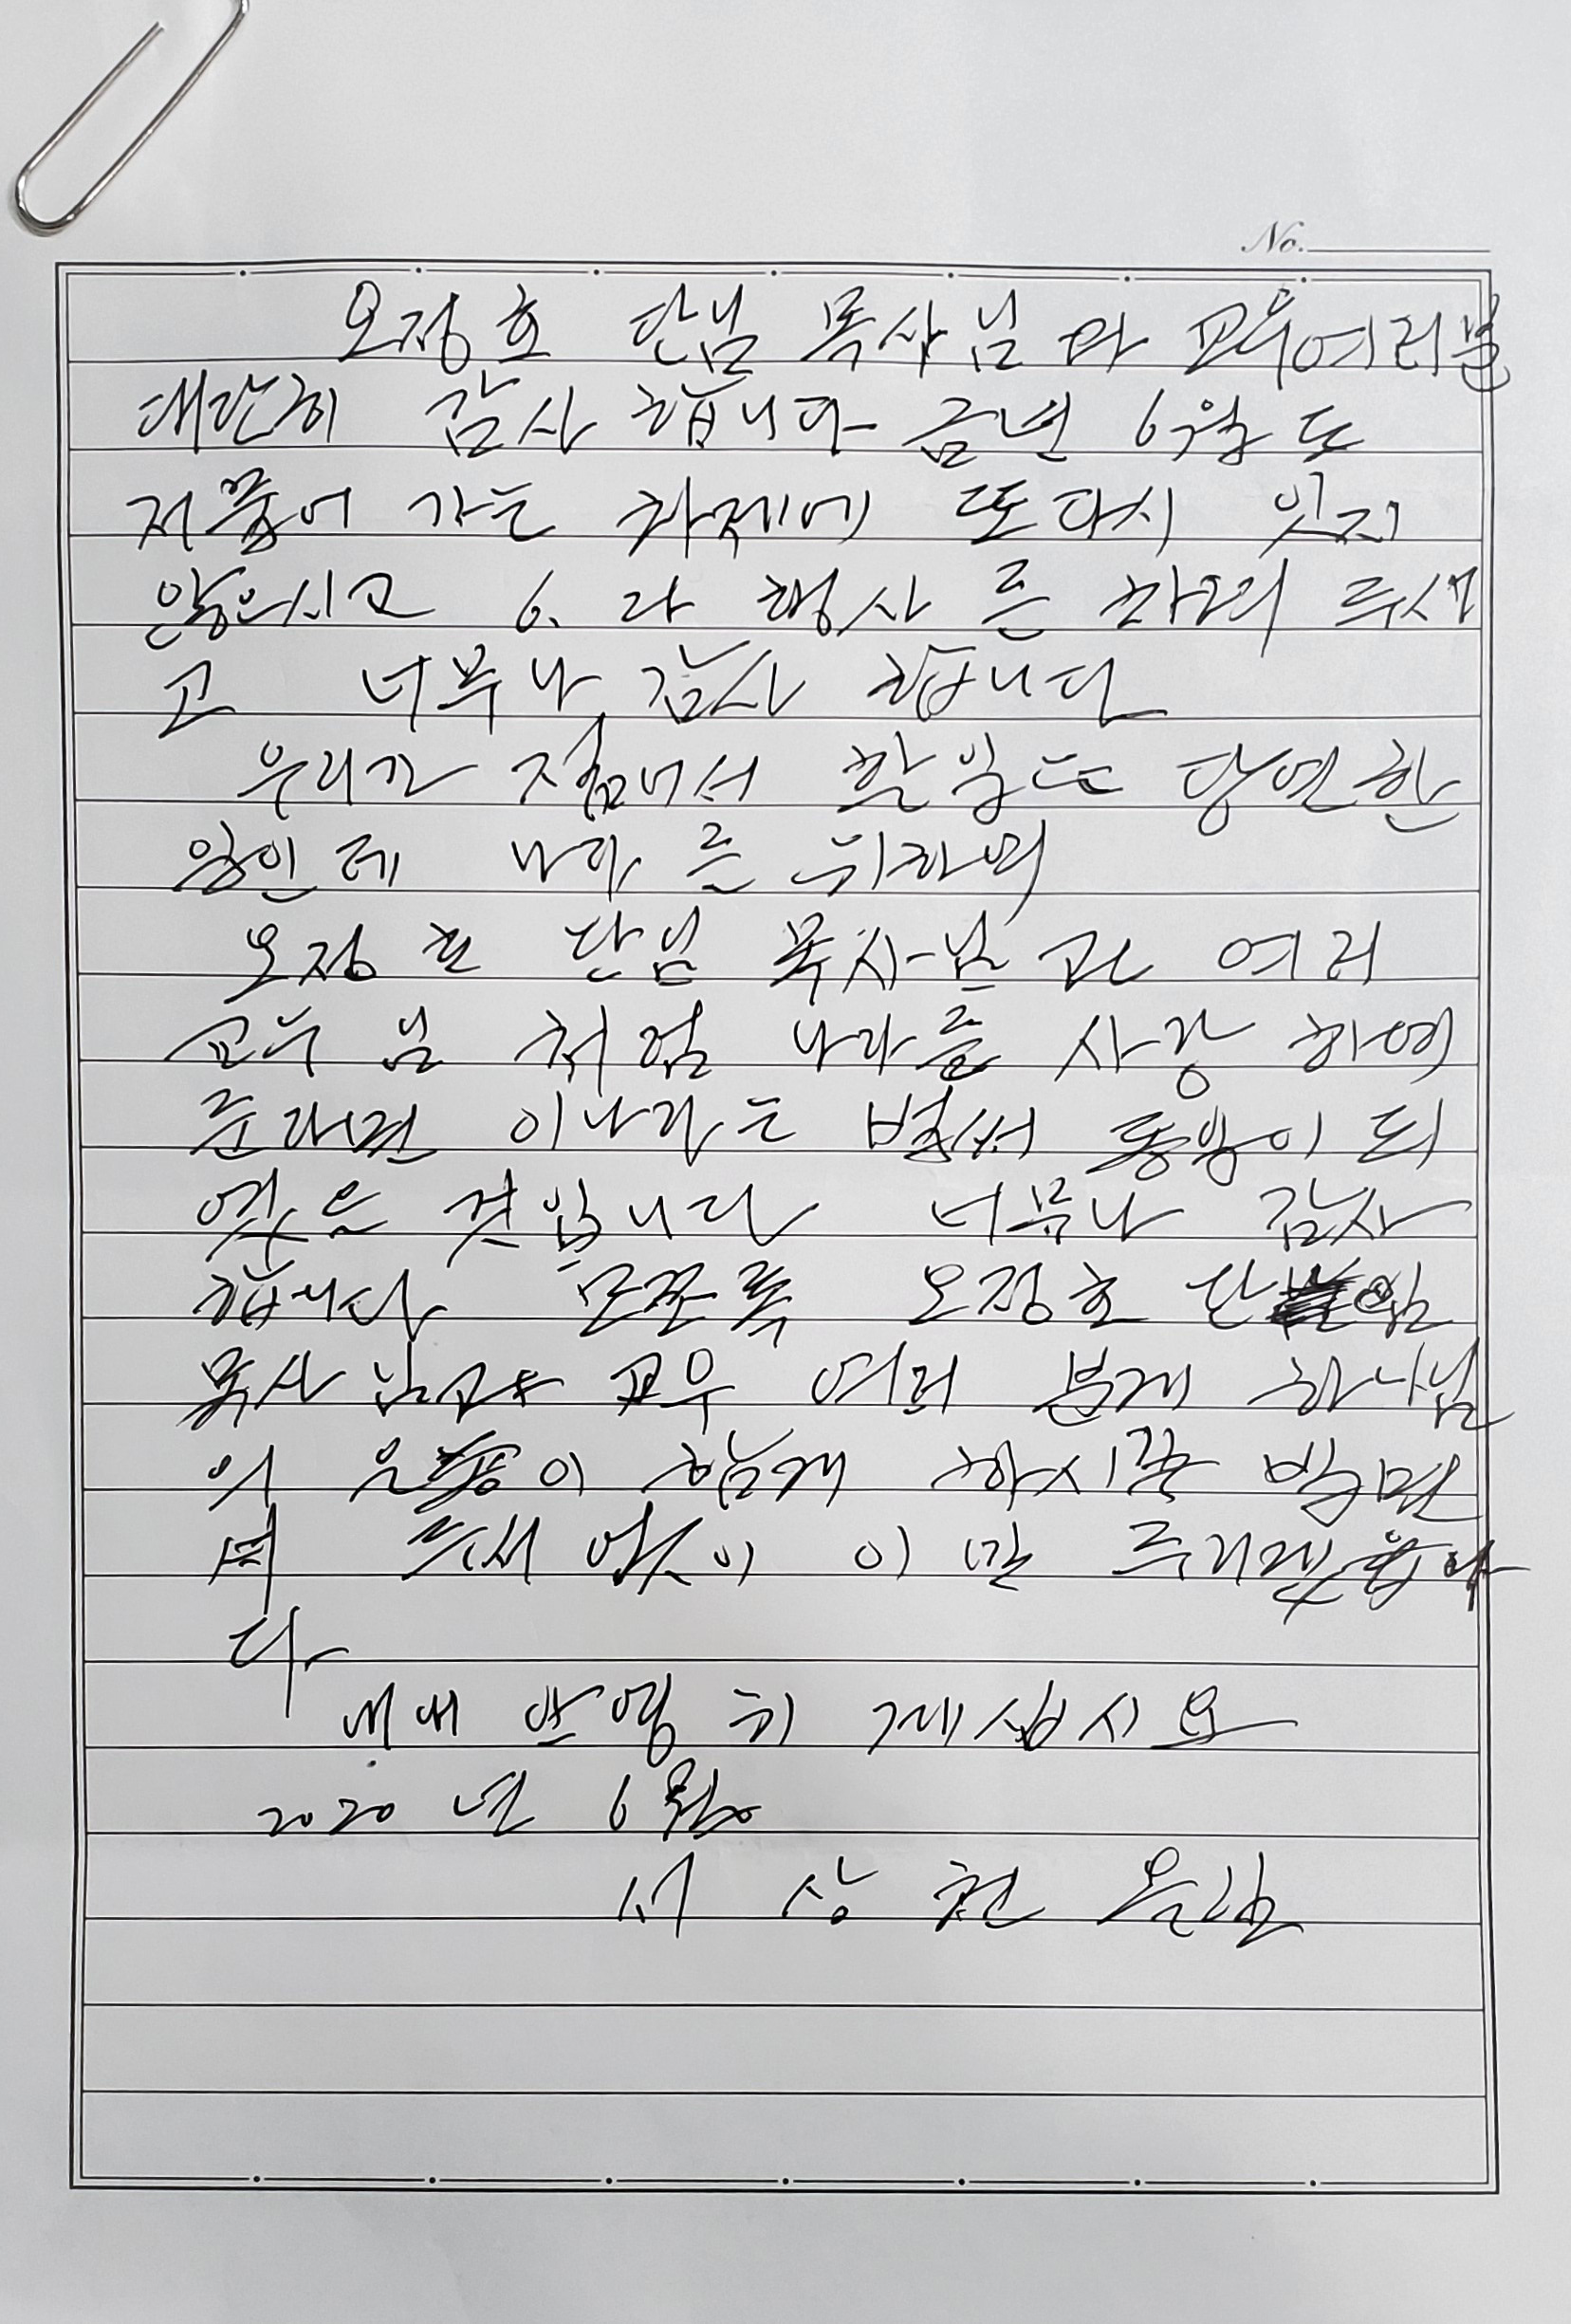 No.
오정호 단님 목사님 과 교우여러분
대단히 감사 합니다 금년 6월도
저물어 가는 차제에 또다시 잊지
않으시고 6. 25 행사 를 차려 주시
고 너무나 감사 합니다
우리가 젊어서 할일도 당연한
일인데 나라 를 위하여
오정호 단님 목사님 과 여러
교우 님 처럼 나라를 사랑 하여
준다면 이나라는 벌써 통일이 되
엿을 것입니다 너무나 감사
합니다 모쪼록 오정호 단임
목사 님과 교우 여러 분게 하나님
의 은총이 함게 하시길 빌면
며 두서 없이 이만 주리겟습니
다
내내 안영 히 게십시요
2020 년 6월
서 상 천 올림